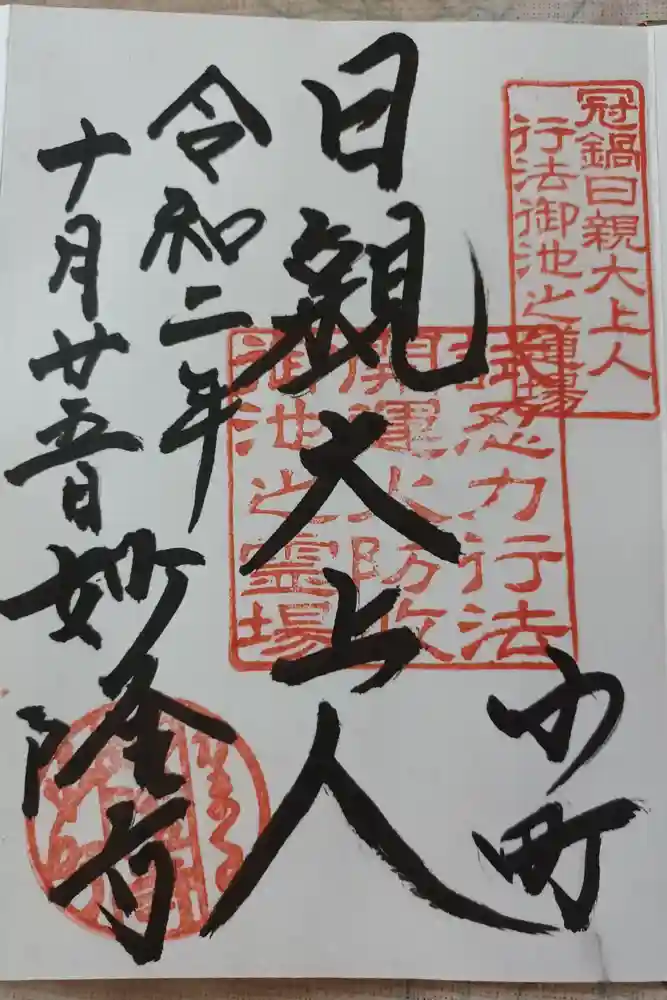 冠鍋日親大上人
行法御池之道場
小町
日親大上人
試忍力行法
開運火防政
御池之霊場
令和二年
十月廿五日
妙隆寺